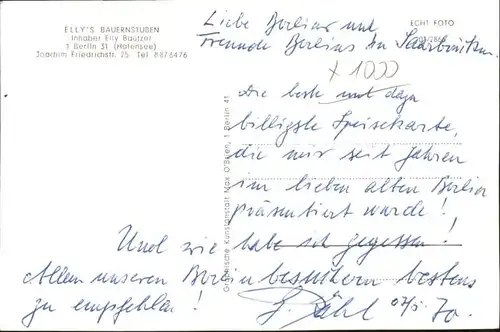 ELLY'S BAUERNSTUBEN
Inhaber Elly Bautzer
1 Berlin 31 (Halensee)
Joachim Friedrichstr. 25 Tel 8876476
ECHT FOTO
Liebe Berliner und
Freunde Berlins in Saarbrücken
x 1000
Die beste und dazu
billigste Speisekarte,
die mir seit Jahren
im lieben alten Berlin
präsentiert wurde!
Und wie habe ich gegessen!
Allen unseren Berlin besuchern bestens
zu empfehlen!
70.
Graphische Kunstanstalt Max O'Brien, 1 Berlin 41